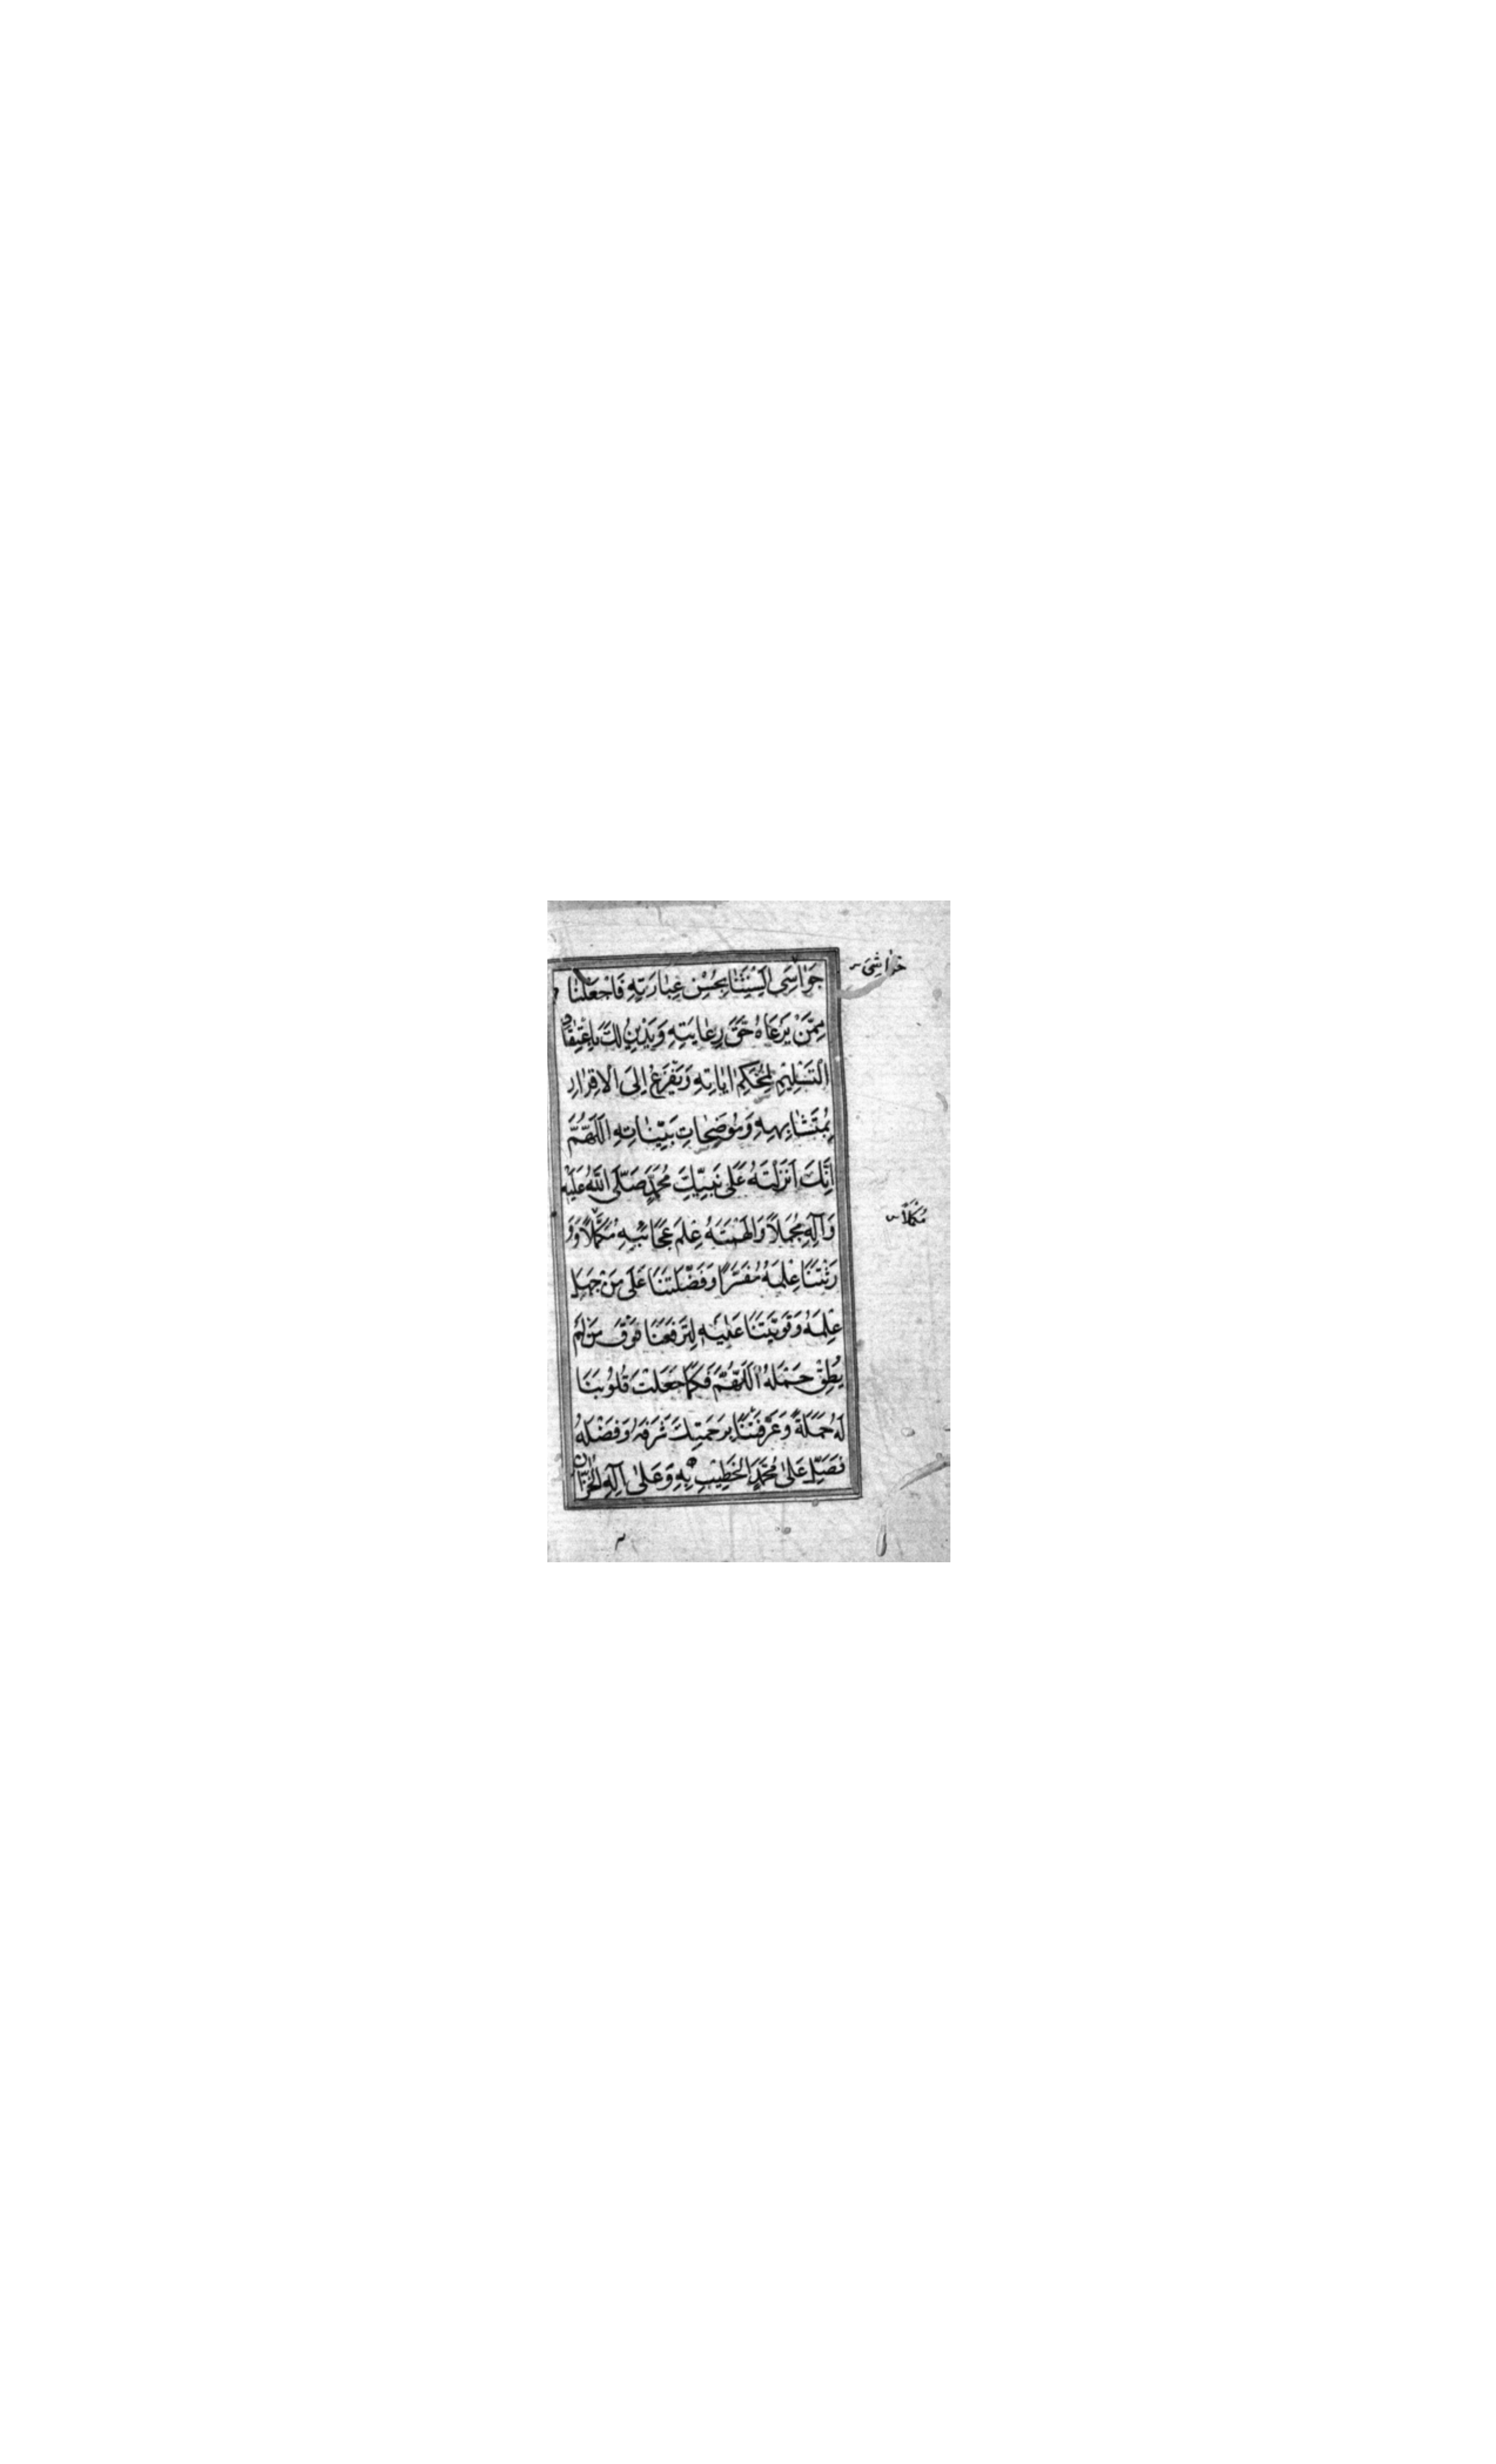 جَوَاسِيَ اَلْسِنَتِنَا بِحُسْنِ عِبَارَتِهِ فَاجْعَلْنَا
مِمَّنْ يَرْعَاهُ حَقَّ رِعَايَتِهِ وَيَدِينُ لَكَ بِاعْتِقَادِ
التَّسْلِيمِ لِمُحْكَمِ اٰيَاتِهِ وَيَفْزَعُ اِلَى الْاِقْرَارِ
بِمُتَشَابِهِهِ وَمُوضِحَاتِ بَيِّنَاتِهِ اَللّٰهُمَّ
اِنَّكَ اَنْزَلْتَهُ عَلٰى نَبِيِّكَ مُحَمَّدٍ صَلَّى اللّٰهُ عَلَيْهِ
وَآلِهِ مُجْمَلاً وَاَلْهَمْتَهُ عِلْمَ عَجَائِبِهِ مُكَمَّلاً وَوَ
رَّثْتَنَا عِلْمَهُ مُفَسَّرًا وَفَضَّلْتَنَا عَلٰى مَنْ جَهِلَ
عِلْمَهُ وَقَوَّيْتَنَا عَلَيْهِ لِتَرْفَعَنَا فَوْقَ مَنْ لَمْ
يُطِقْ حَمْلَهُ اَللّٰهُمَّ فَكَمَا جَعَلْتَ قُلُوبَنَا
لَهُ حَمَلَةً وَعَرَّفْتَنَا بِرَحْمَتِكَ شَرَفَهُ وَفَضْلَهُ
فَصَلِّ عَلٰى مُحَمَّدٍ الْخَطِيبِ بِهِ وَعَلٰى آلِهِ الْخُزَّانِ
مُكْمَلاً